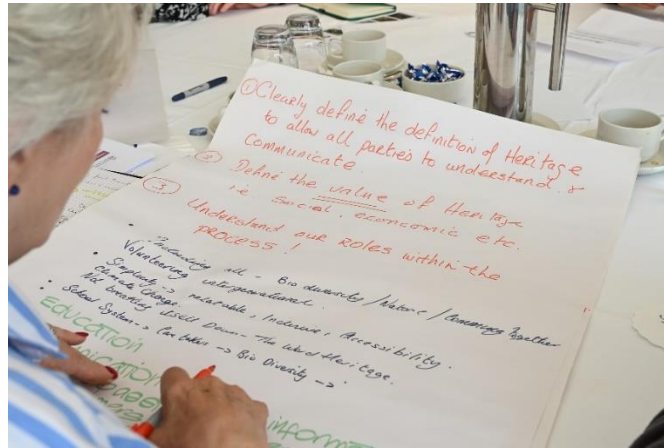 ① Clearly define the definition of Heritage
to allow all parties to understand &
communicate.
② Define the value of Heritage
i.e Social, economic etc.
③ Understand our roles within the
process!
• Including all - Bio diversity / Historic / Community Together
Volunteering intergenerational.
• Simplicity → relatable, Inclusive, Accessibility.
Climate change.
Not breaking itself Down - The word Heritage.
• School System → Caretakers → Bio Diversity →
EDUCATION